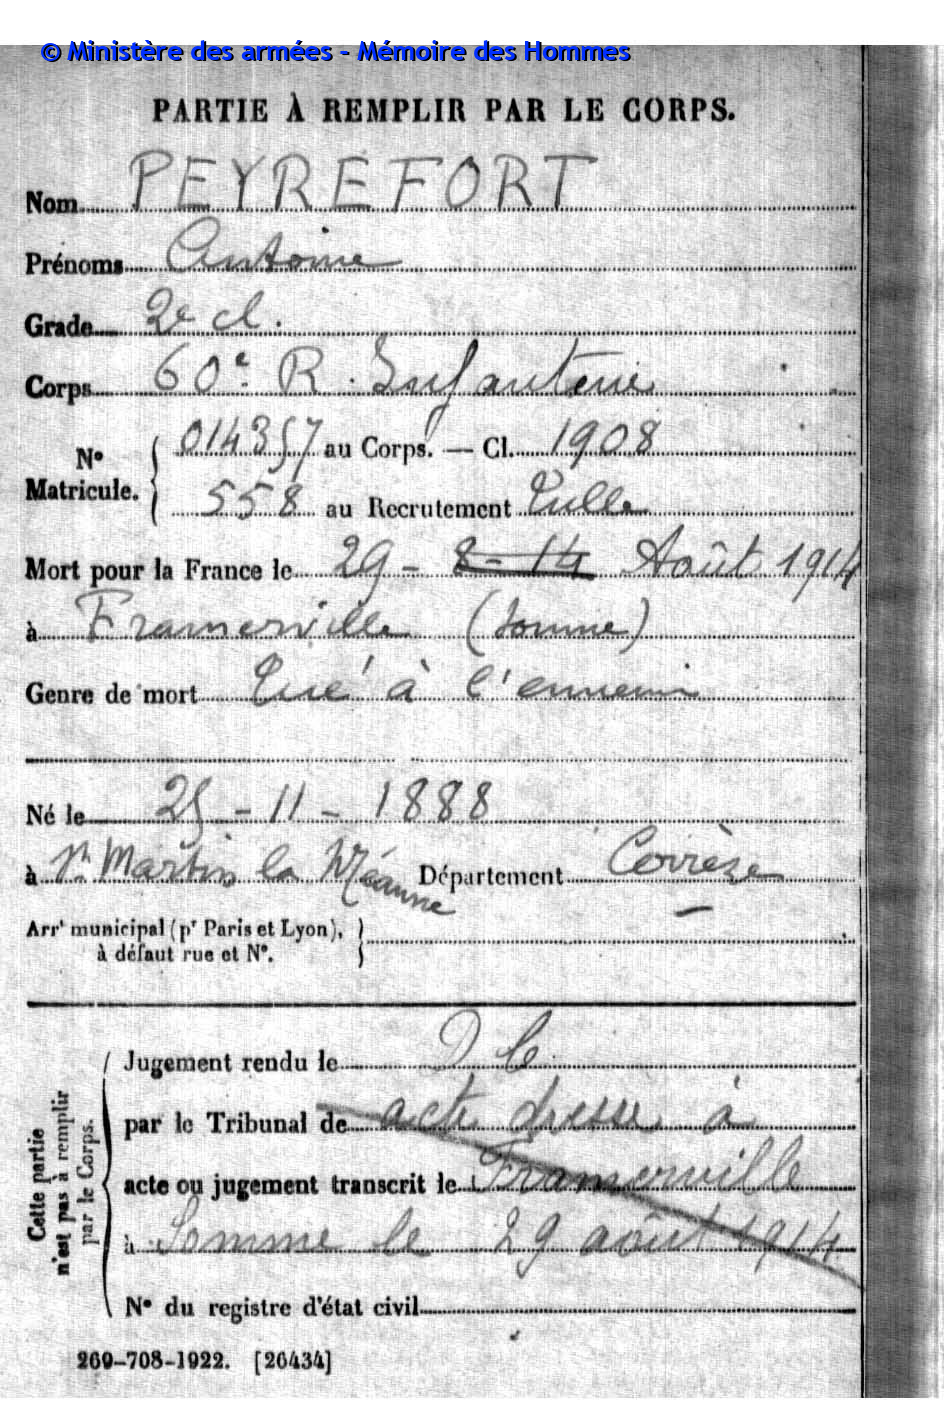 © Ministère des armées - Mémoire des Hommes
PARTIE À REMPLIR PAR LE CORPS.
Nom PEYREFORT
Prénoms Antoine
Grade 2e cl.
Corps 60e R. Infanterie
N° Matricule. 014357 au Corps. — Cl. 1908
558 au Recrutement Tulle
Mort pour la France le 29 - 8 - 14 Août 1914
à Framerville (Somme)
Genre de mort Tué à l'ennemi
Né le 25 - 11 - 1888
à St Martin la Méanne Département Corrèze
Arrt municipal (pr Paris et Lyon),
à défaut rue et N°.
Cette partie n'est pas à remplir par le Corps.
Jugement rendu le
par le Tribunal de acte dressé à
acte ou jugement transcrit le Framerville
à Somme le 29 août 1914
N° du registre d'état civil
269-708-1922. [26434]